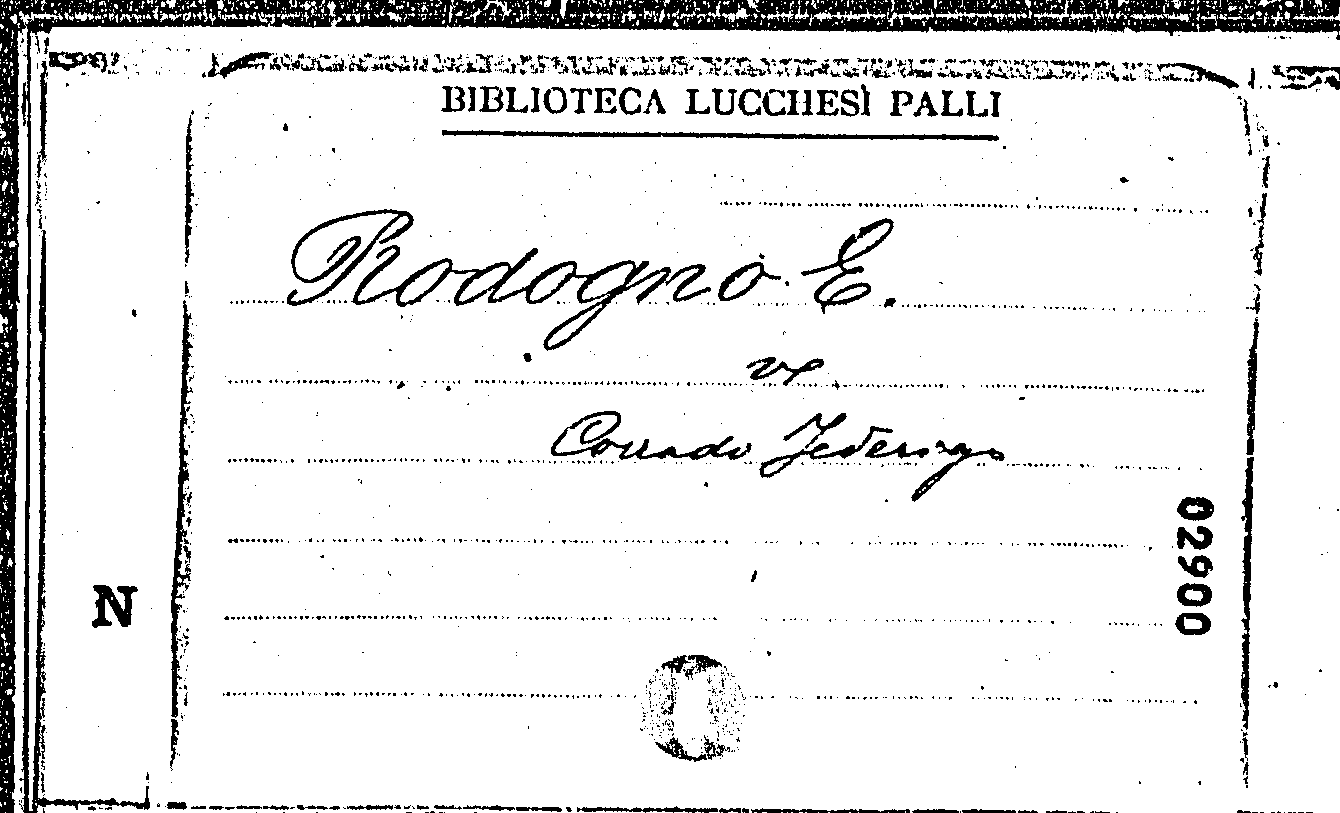 BIBLIOTECA LUCCHESI PALLI
Rodogno E.
Corrado Federigo
02900
N